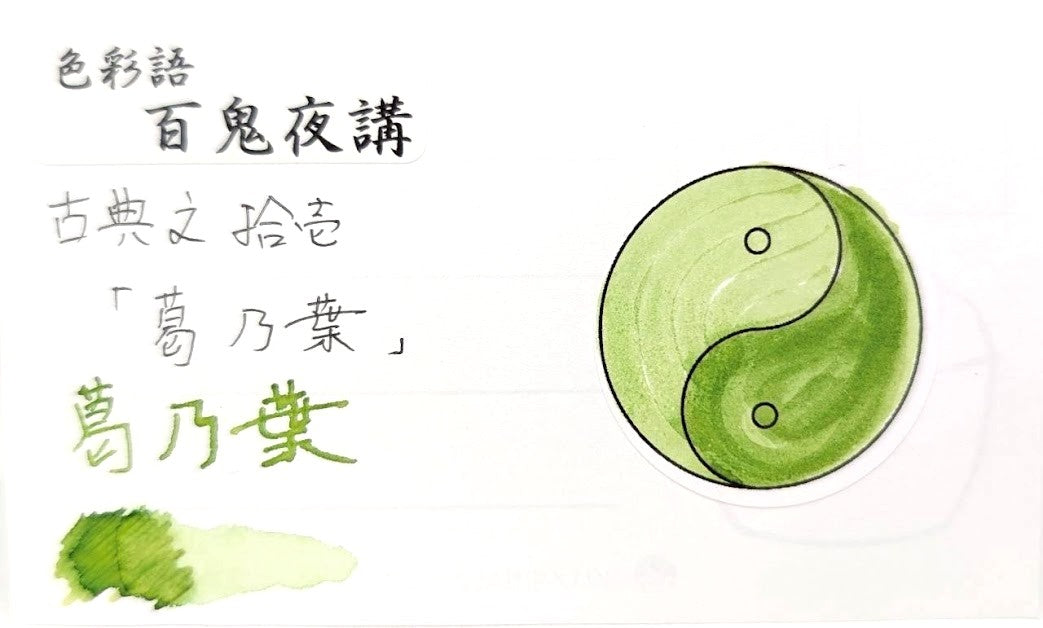 色彩語
百鬼夜講
古典文 拾壱
「葛乃葉」
葛乃葉